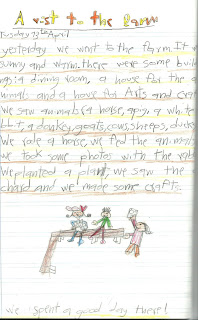 A visit to the farm
Tuesday 23rd April
yesterday we went to the farm. It w
sunny and warm. there were some buil
ngs: a dining room, a house for the a
nimals and a house for Arts and craf
We saw animals: a horse, a white
a donkey, goats, cows, sheeps, ducks
We rode a horse, we fed the animals
we took some photos with the
We planted a plant, we saw the
and we made some crafts.
we spent a good day there!